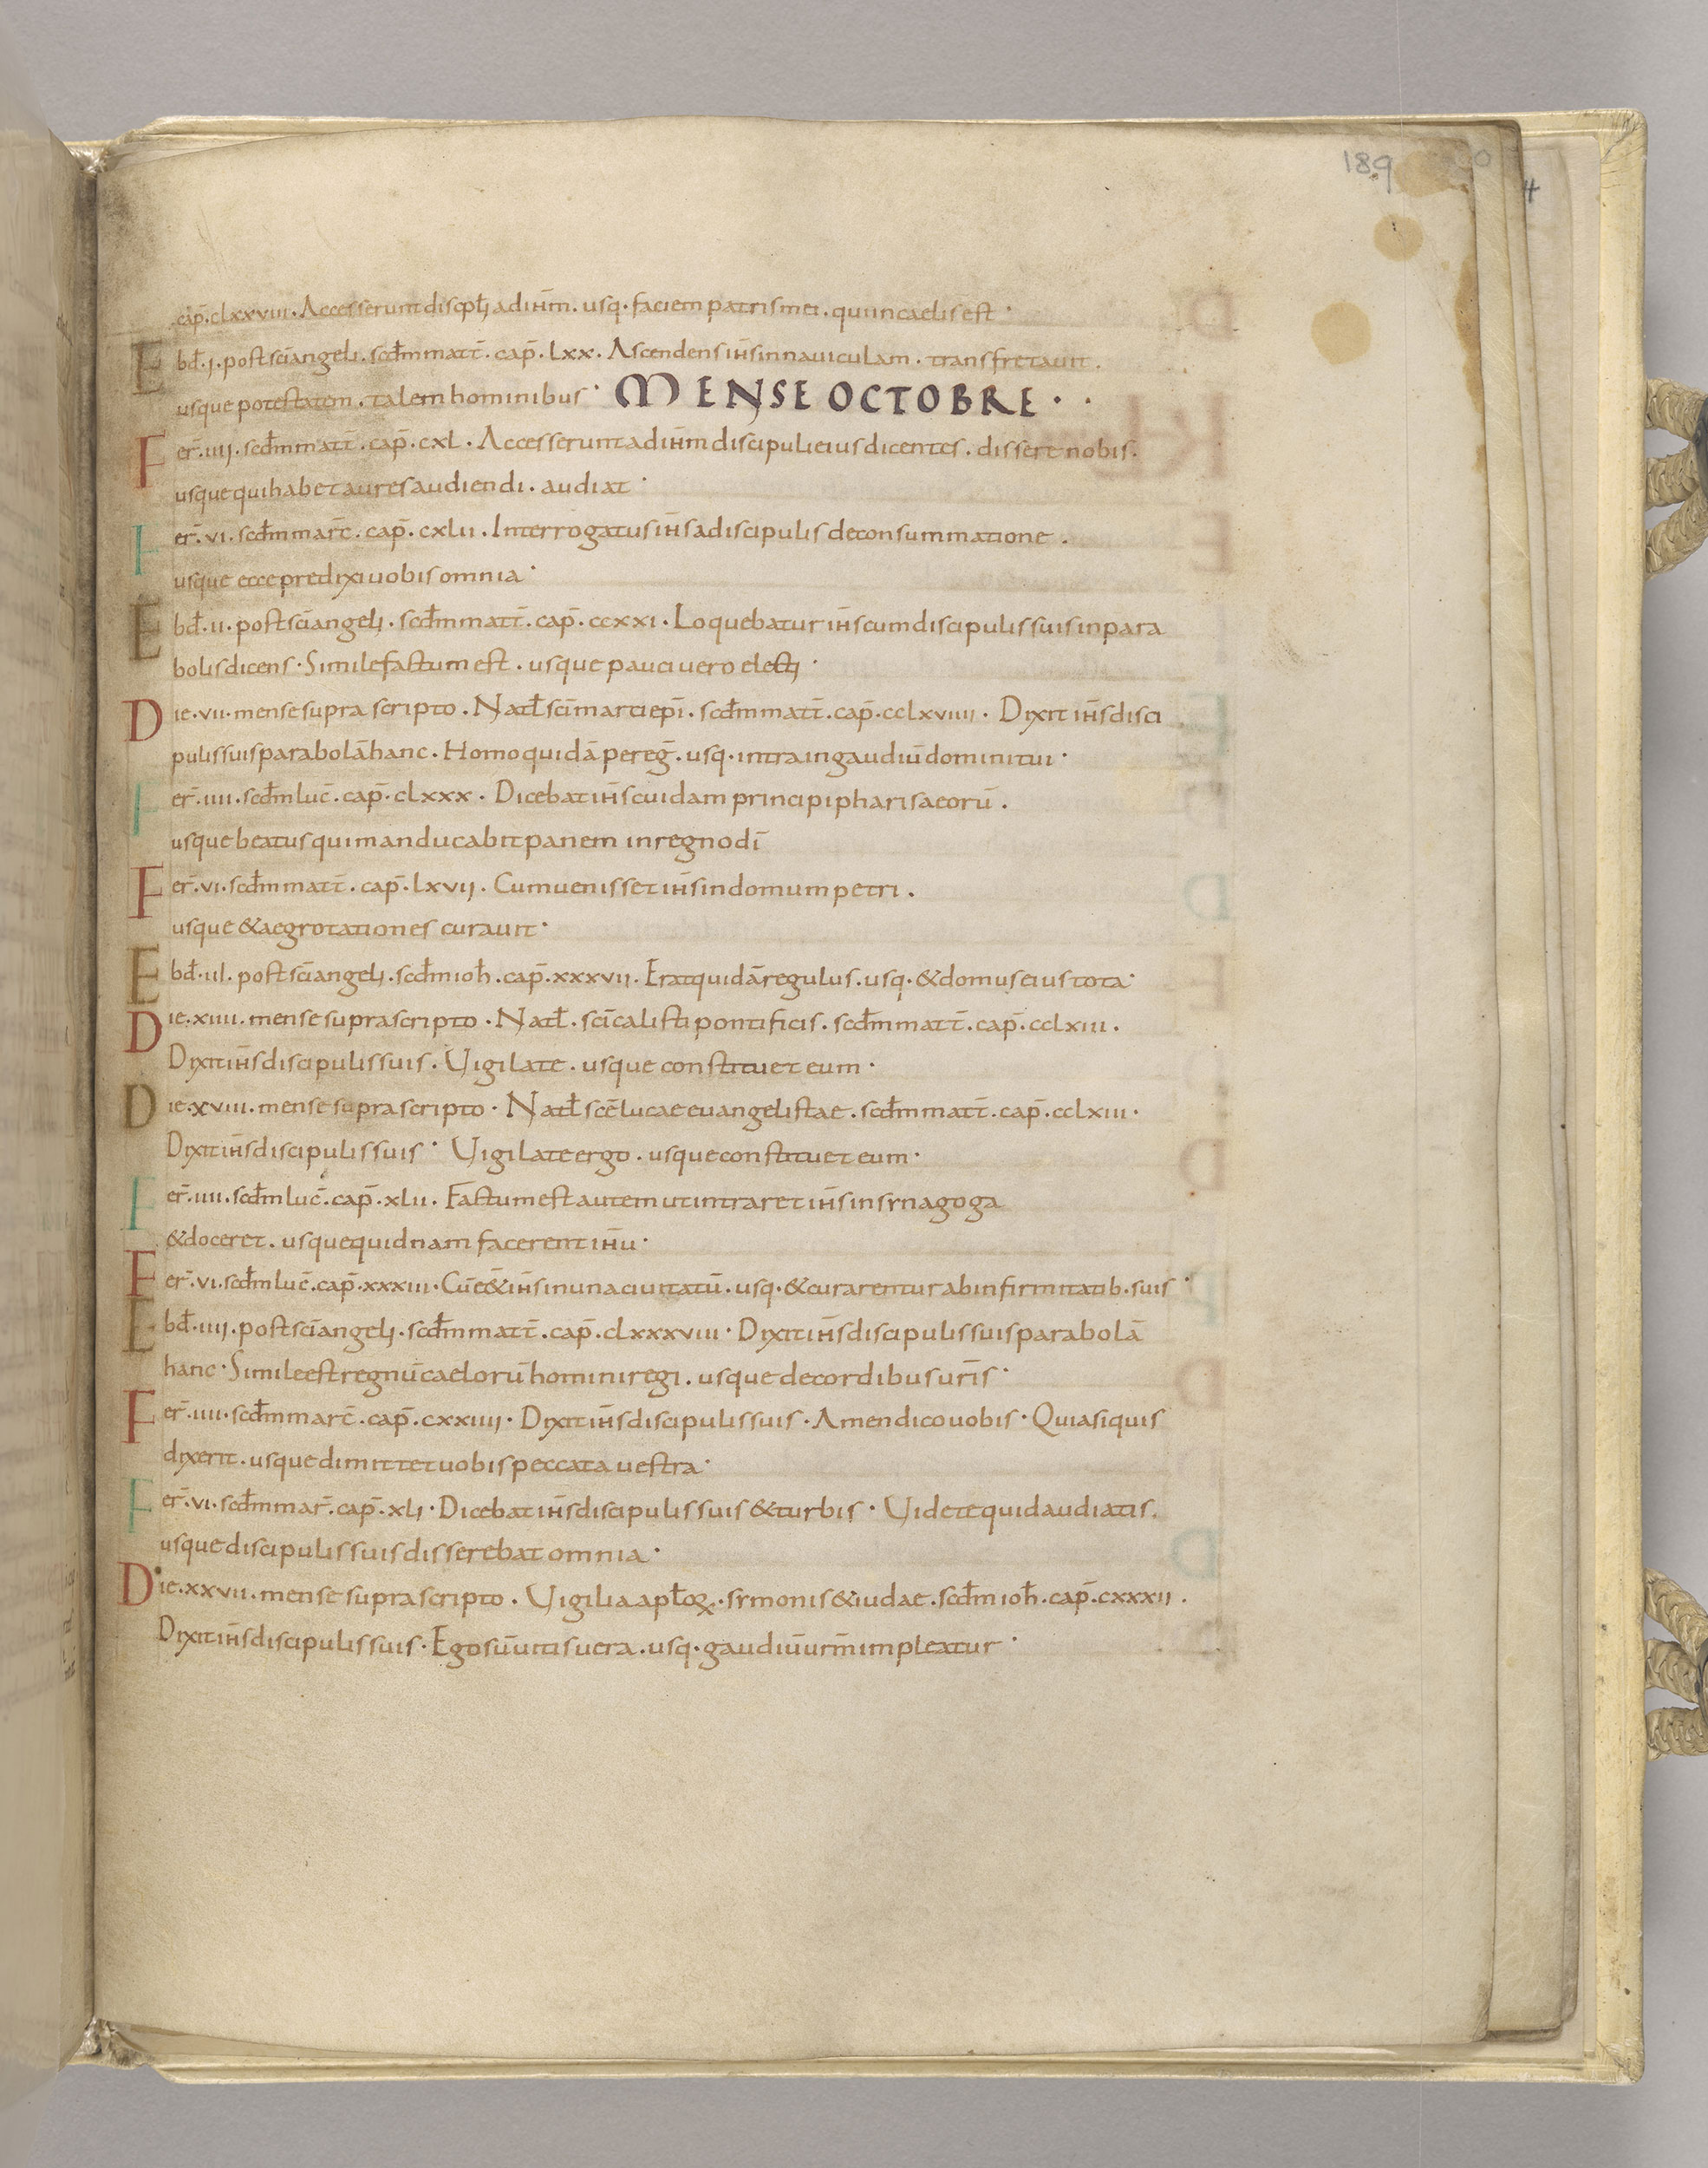 189
cap̄. clxxviii. Accesserunt discip̄lj ad ih̄m. usq. faciem patris mei. qui in caelis est.
Ebd̄. j. post sc̄i angeli. scd̄m matt̄. cap̄. lxx. Ascendens ih̄s in nauiculam. transfretauit.
usque potestatem. talem hominibus. MENSE OCTOBRE.
Fer̄. iiij. scd̄m matt̄. cap̄. cxl. Accesserunt ad ih̄m discipuli eius dicentes. dissere nobis.
usque qui habet aures audiendi. audiat.
Fer̄. vi. scd̄m marc̄. cap̄. cxlii. Interrogatus ih̄s a discipulis de consummatione.
usque ecce predixi uobis omnia.
Ebd̄. ii. post sc̄i angelj. scd̄m matt̄. cap̄. ccxxi. Loquebatur ih̄s cum discipulis suis in para
bolis dicens. Simile factum est. usque pauci uero electj.
Die. vii. mense supra scripto. Natł sc̄i marci ep̄i. scd̄m matt̄. cap̄. cclxviiii. Dixit ih̄s disci
pulis suis parabolā hanc. Homo quidā pereḡ. usq. intra in gaudiū domini tui.
Fer̄. iiii. scd̄m luc̄. cap̄. clxxx. Dicebat ih̄s cuidam principi pharisaeorū.
usque beatus qui manducabit panem in regno dī
Fer̄. vi. scd̄m matt̄. cap̄. lxvij. Cum uenisset ih̄s in domum petri.
usque & aegrotationes curauit.
Ebd̄. iıı. post sc̄i angelj. scd̄m ioh̄. cap̄. xxxvii. Erat quidā regulus. usq. & domus eius tota.
Die. xiiii. mense suprascripto. Natł. sc̄i calisti pontificis. scd̄m matt̄. cap̄. cclxiii.
Dixit ih̄s discipulis suis. Uigilate. usque constituet eum.
Die. xviii. mense supra scripto. Natł sc̄e lucae euangelistae. scd̄m matt̄. cap̄. cclxiii.
Dixit ih̄s discipulis suis. Uigilate ergo. usque constituet eum.
Fer̄. iiii. scd̄m luc̄. cap̄. xlii. Factum est autem ut intraret ih̄s in synagoga
& doceret. usque quidnam facerent ih̄u.
Fer̄. vi. scd̄m luc̄. cap̄. xxxiii. Cū e&̄ ih̄s in una ciuitatū. usq. & curarentur ab infirmitatib. suis.
Ebd̄. iiij. post sc̄i angelj. scd̄m matt̄. cap̄. clxxxviii. Dixit ih̄s discipulis suis parabolā
hanc. Simile est regnū caelorū homini regi. usque de cordibus ur̄is.
Fer̄. iiii. scd̄m marc̄. cap̄. cxxiiij. Dixit ih̄s discipulis suis. Amen dico uobis. Quia si quis
dixerit. usque dimittet uobis peccata uestra.
Fer̄. vi. scd̄m mar̄. cap̄. xlj. Dicebat ih̄s discipulis suis & turbis. Uidete quid audiatis.
usque discipulis suis disserebat omnia.
Die. xxvii. mense suprascripto. Uigilia apłoꝝ. symonis & iudae. scd̄m ioh̄. cap̄. cxxxii.
Dixit ih̄s discipulis suis. Ego sū uitis uera. usq. gaudiū ur̄m impleatur.